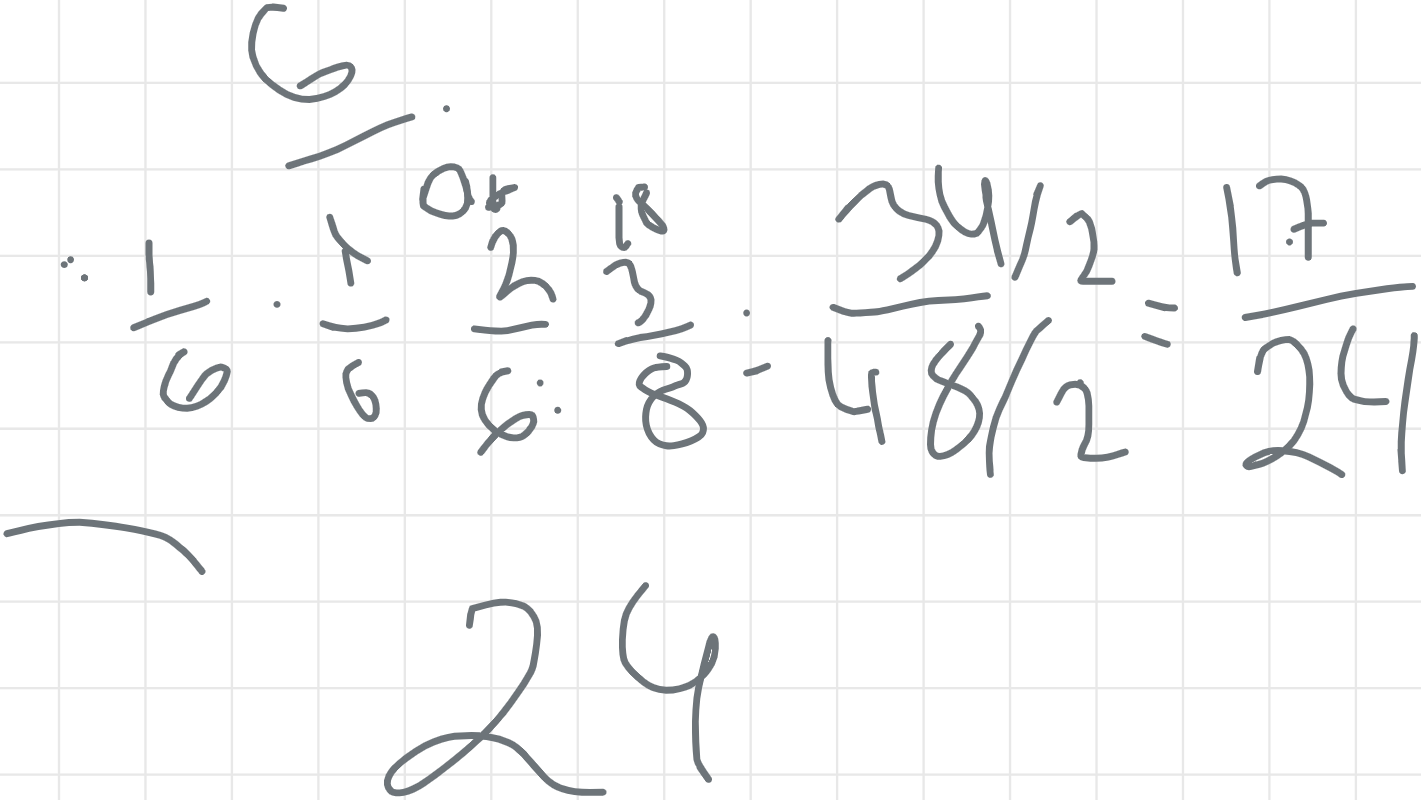 6
18
1/6 · 1/6 2/6 3/8 - 34/2 / 48/2 = 17/24
24